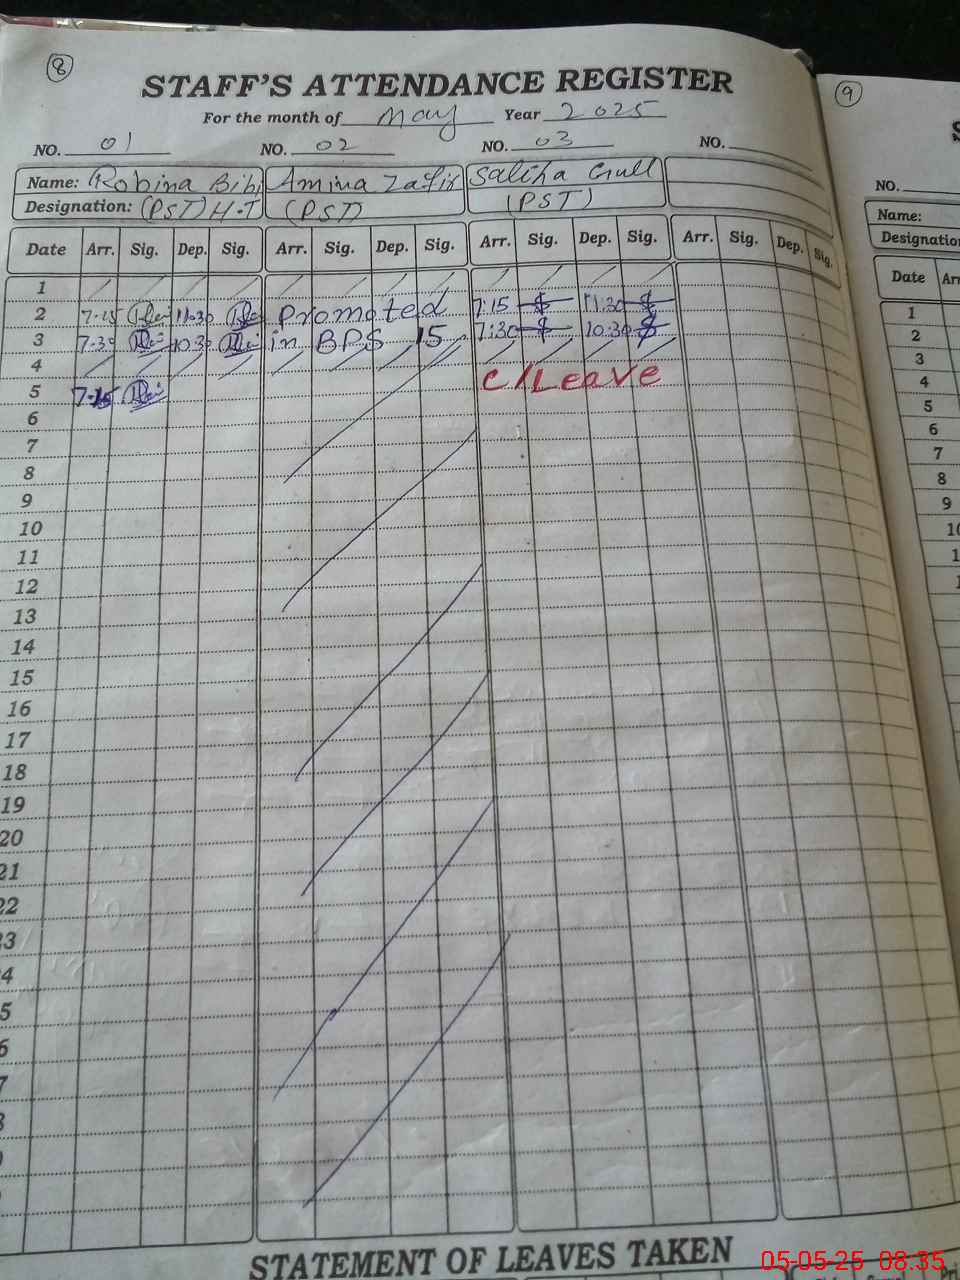 8
STAFF'S ATTENDANCE REGISTER
For the month of May Year 2025
NO. 01 NO. 02 NO. 03 NO.
Name: Robina Bibi Amina Zafir Saliha Gull
Designation: (PST) H.T (PST) (PST)
Date Arr. Sig. Dep. Sig. Arr. Sig. Dep. Sig. Arr. Sig. Dep. Sig. Arr. Sig. Dep. Sig.
1
2 7.15 11.30 Promoted 7:15 11.30
3 7.30 10.30 in BPS 15 7:30 10.30
4
5 7.15 C/Leave
6
7
8
9
10
11
12
13
14
15
16
17
18
19
20
21
22
23
4
5
6
7
8
STATEMENT OF LEAVES TAKEN
9
S
NO.
Name:
Designatio
Date Arr
1
2
3
4
5
6
7
8
9
10
1
1
05-05-25 08:35